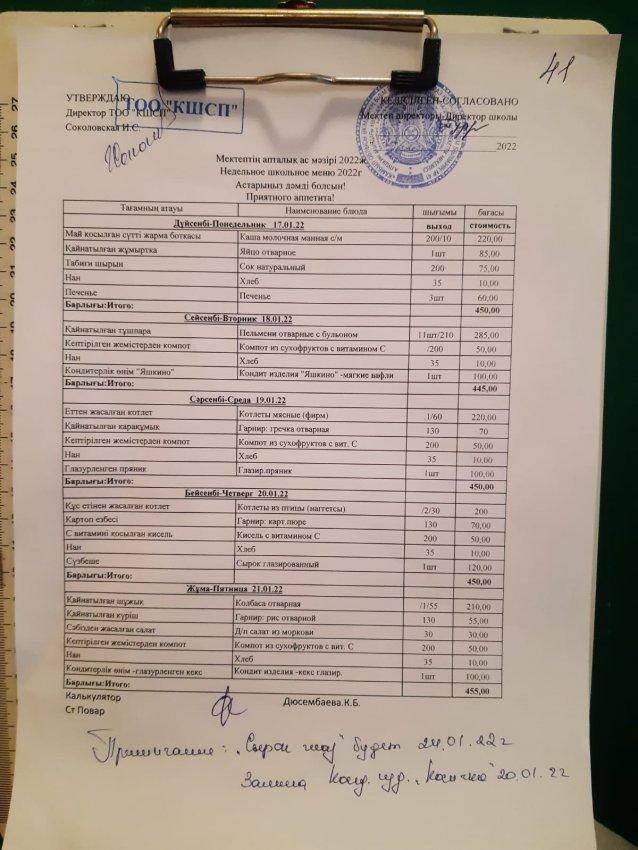 41
УТВЕРЖДАЮ КЕЛІСІЛГЕН-СОГЛАСОВАНО
ТОО "КШСП"
Директор ТОО "КШСП" Мектеп директоры-Директор школы
Соколовская И.С.
2022
Мектептің апталық ас мәзірі 2022ж
Недельное школьное меню 2022г
Астарыңыз дәмді болсын!
Приятного аппетита!
Тағамның атауы Наименование блюда шығымы бағасы
Дүйсенбі-Понедельник 17.01.22 выход стоимость
Май қосылған сүтті жарма ботқасы Каша молочная манная с/м 200/10 220,00
Қайнатылған жұмыртқа Яйцо отварное 1шт 85,00
Табиғи шырын Сок натуральный 200 75,00
Нан Хлеб 35 10,00
Печенье Печенье 3шт 60,00
Барлығы:Итого: 450,00
Сейсенбі-Вторник 18.01.22
Қайнатылған тұшпара Пельмени отварные с бульоном 11шт/210 285,00
Кептірілген жемістерден компот Компот из сухофруктов с витамином С /200 50,00
Нан Хлеб 35 10,00
Кондитерлік өнім "Яшкино" Кондит изделия "Яшкино" -мягкие вафли 1шт 100,00
Барлығы:Итого: 445,00
Сәрсенбі-Среда 19.01.22
Еттен жасалған котлет Котлеты мясные (фирм) 1/60 220,00
Қайнатылған қарақұмық Гарнир: гречка отварная 130 70
Кептірілген жемістерден компот Компот из сухофруктов с вит. С 200 50,00
Нан Хлеб 35 10,00
Глазурленген пряник Глазир.пряник 1шт 100,00
Барлығы:Итого: 450,00
Бейсенбі-Четверг 20.01.22
Құс етінен жасалған котлет Котлеты из птицы (наггетсы) /2/30 200
Картоп езбесі Гарнир: карт.пюре 130 70,00
С витамині қосылған кисель Кисель с витамином С 200 50,00
Нан Хлеб 35 10,00
Сүзбеше Сырок глазированный 1шт 120,00
Барлығы:Итого: 450,00
Жұма-Пятница 21.01.22
Қайнатылған шұжық Колбаса отварная /1/55 210,00
Қайнатылған күріш Гарнир: рис отварной 130 55,00
Сәбізден жасалған салат Д/п салат из моркови 30 30.00
Кептірілген жемістерден компот Компот из сухофруктов с вит. С 200 50,00
Нан Хлеб 35 10,00
Кондитерлік өнім -глазурленген кекс Кондит изделия -кекс глазир. 1шт 100,00
Барлығы:Итого: 455,00
Калькулятор Дюсембаева.К.Б.
Ст Повар
Примечание: "Сырок глаз" будет 24.01.22г
Замена Конд. изд. 20.01.22